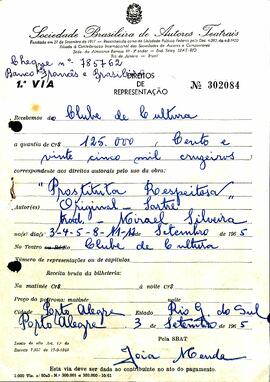 Sociedade Brasileira de Autores Teatrais
Fundada em 27 de Setembro de 1917 - Reconhecida como de Utilidade Pública Federal pelo Dec. 4.092, de 4-8-1920
Filiada à Confederação Internacional das Sociedades de Autores e Compositores
Rio de Janeiro - Brasil
Cheque nº 785762
Banco Francês e Brasileiro
1.ª VIA
DIREITOS
DE
REPRESENTAÇÃO
Nº 302084
Recebemos do Clube de Cultura
a quantia de Cr$ 125.000, Cento e
vinte cinco mil cruzeiros
correspondente aos direitos autorais pelo uso da obra:
"Prostituta Respeitosa"
Autor(es) Original - Sartre
Trad. - Miroel Silveira
no(s) dia(s) 3-4-5-8-11-12 Setembro de 1965
No Teatro Clube de Cultura
Número de representações ou de capítulos
Receita bruta da bilheteria:
Na matinée Cr$ à noite Cr$
Cidade Porto Alegre Estado Rio G. do Sul
Porto Alegre 3 de Setembro de 1965
Pela SBAT
Esta via deve ser dada ao contribuinte no ato do pagamento.